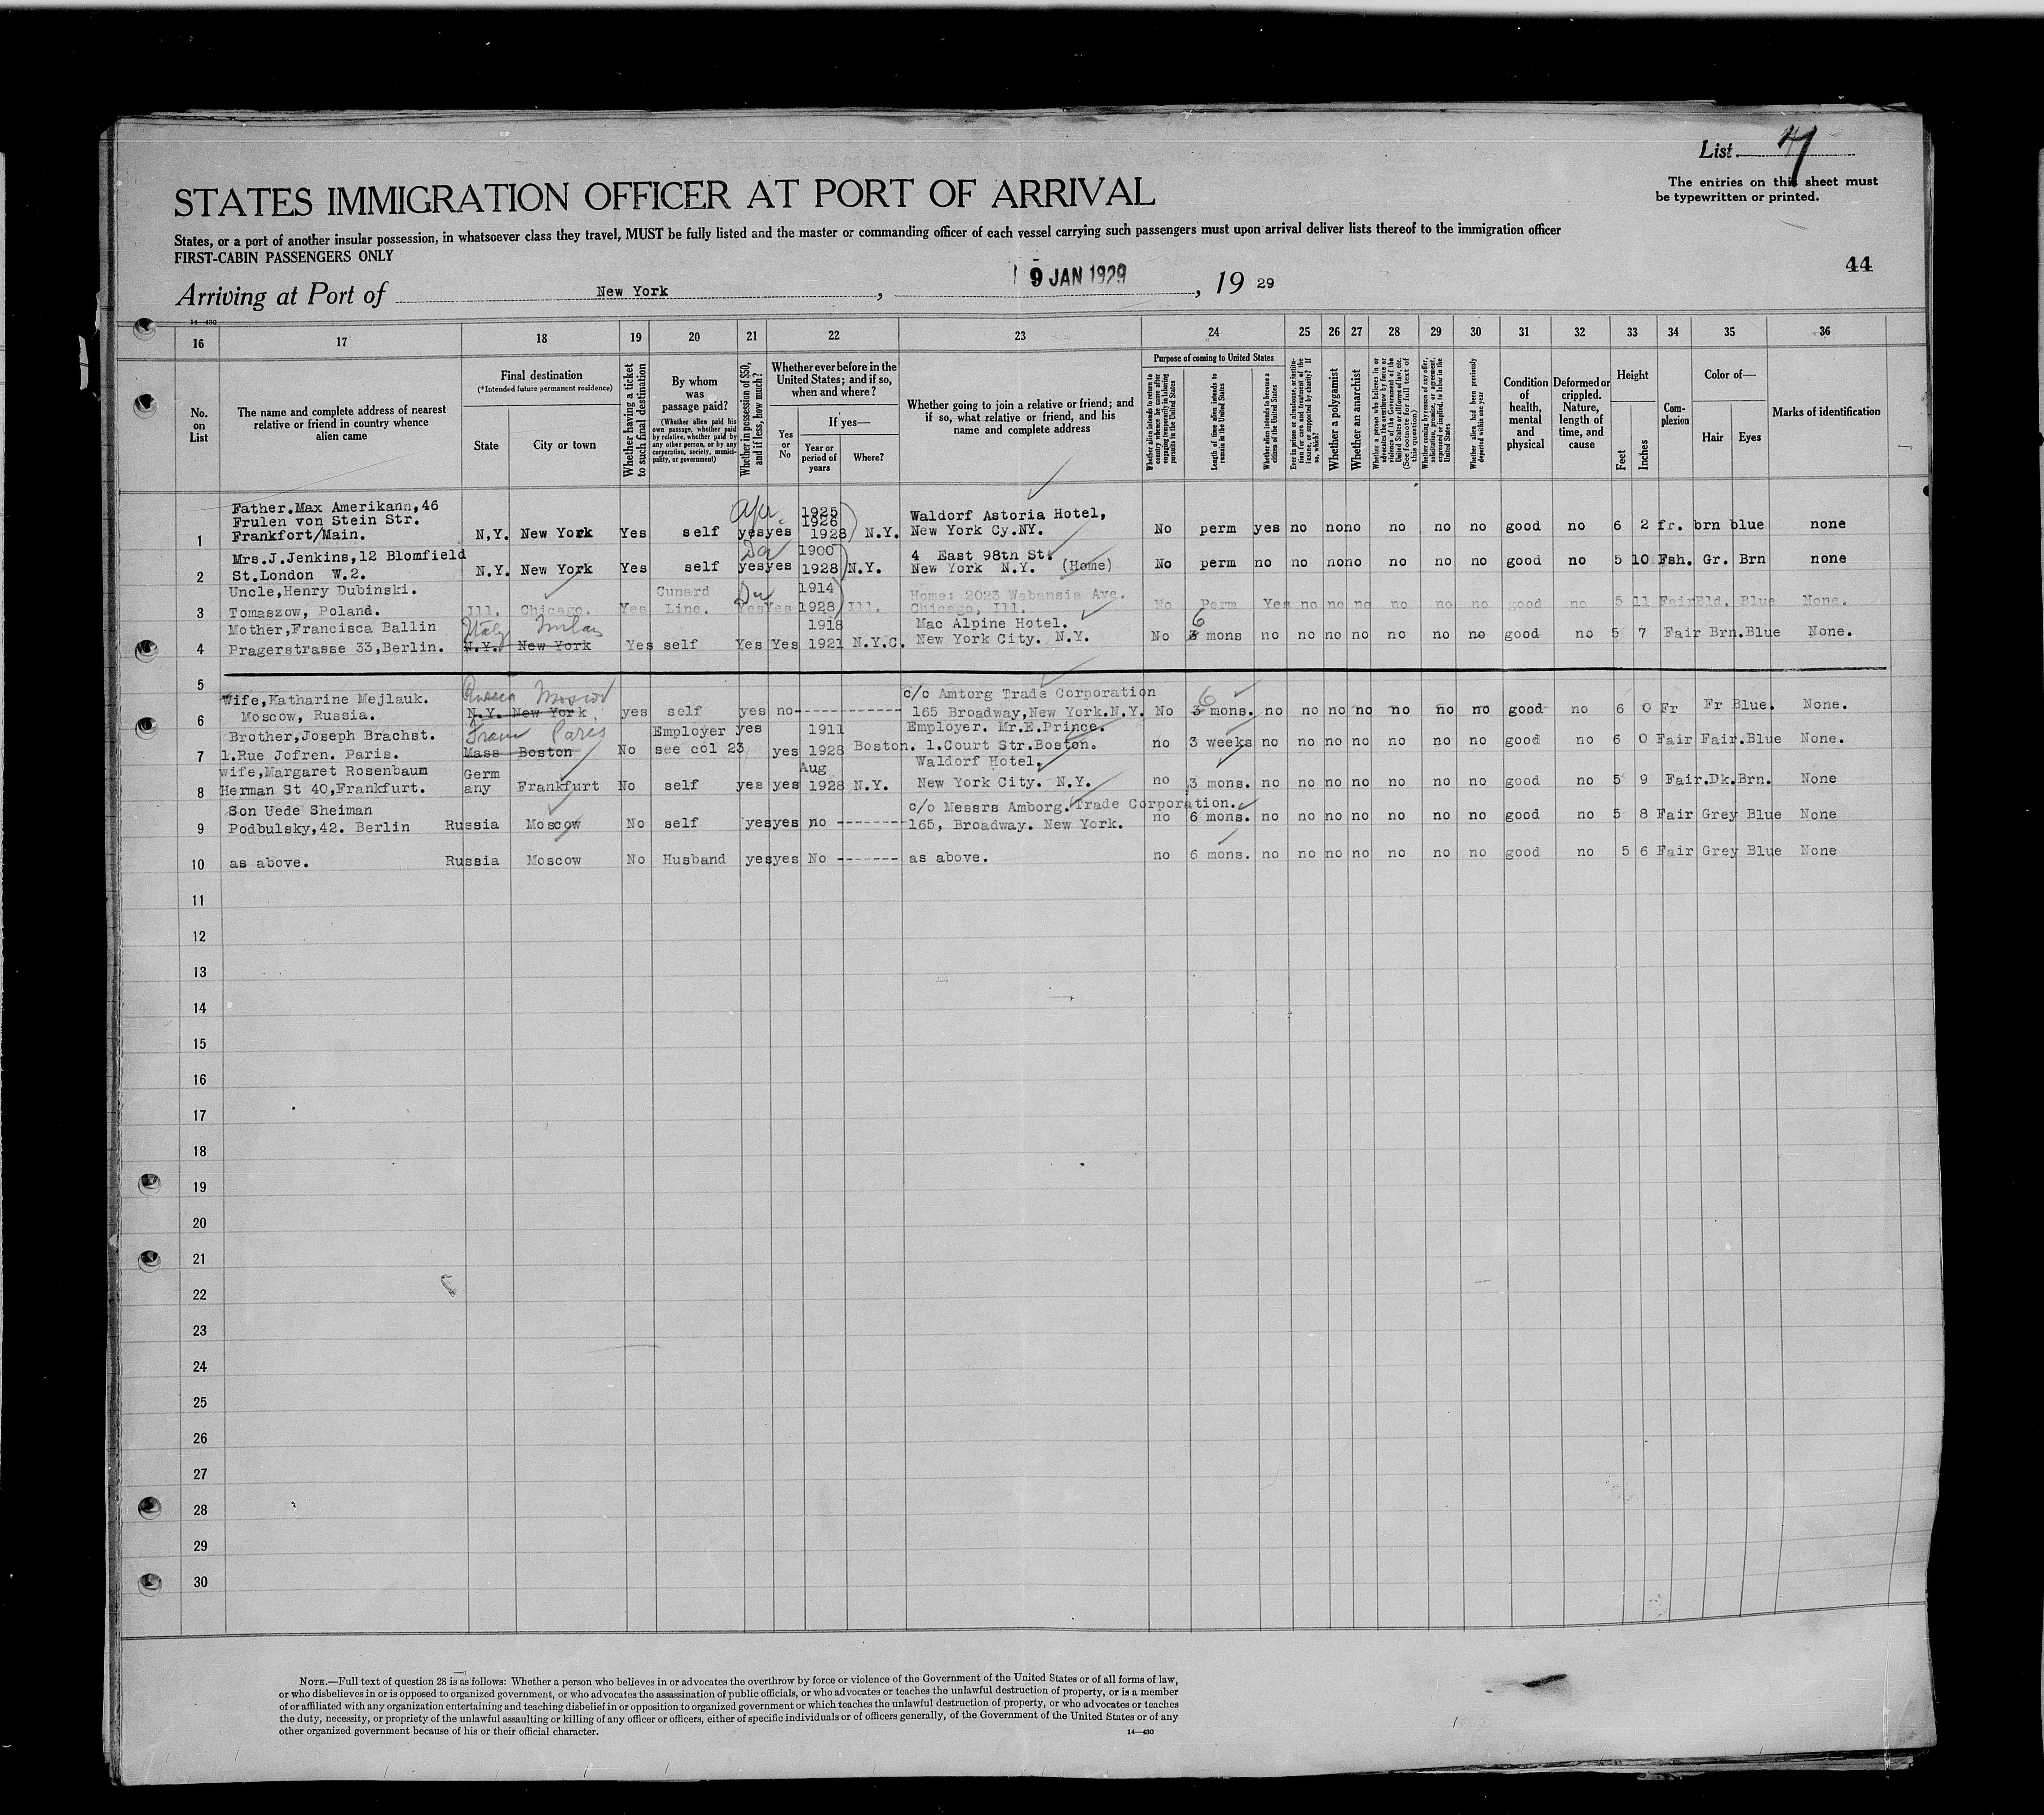 List 4
The entries on this sheet must
be typewritten or printed.
STATES IMMIGRATION OFFICER AT PORT OF ARRIVAL
States, or a port of another insular possession, in whatsoever class they travel, MUST be fully listed and the master or commanding officer of each vessel carrying such passengers must upon arrival deliver lists thereof to the immigration officer
FIRST-CABIN PASSENGERS ONLY
44
Arriving at Port of New York, 9 JAN 1929, 19 29
14—430
16 17 18 19 20 21 22 23 24 25 26 27 28 29 30 31 32 33 34 35 36
No. on List
The name and complete address of nearest relative or friend in country whence alien came
Final destination
(*Intended future permanent residence)
State
City or town
Whether having a ticket to such final destination
By whom was passage paid?
(Whether alien paid his own passage, whether paid by relative, whether paid by any other person, or by any corporation, society, municipality, or government)
Whether in possession of $50, and if less, how much?
Whether ever before in the United States; and if so, when and where?
Yes or No
If yes—
Year or period of years
Where?
Whether going to join a relative or friend; and if so, what relative or friend, and his name and complete address
Purpose of coming to United States
Whether alien intends to return to country whence he came after engaging temporarily in laboring pursuits in the United States
Length of time alien intends to remain in the United States
Whether alien intends to become a citizen of the United States
Ever in prison or almshouse, or institution for care and treatment of the insane, or supported by charity? If so, which?
Whether a polygamist
Whether an anarchist
Whether a person who believes in or advocates the overthrow by force or violence of the Government of the United States or all forms of law, etc. (See footnote for full text of this question)
Whether coming by reason of any offer, solicitation, promise, or agreement, expressed or implied, to labor in the United States
Whether alien had been previously deported within one year
Condition of health, mental and physical
Deformed or crippled. Nature, length of time, and cause
Height
Feet
Inches
Complexion
Color of—
Hair
Eyes
Marks of identification
Father.Max Amerikann,46
Frulen von Stein Str.
1 Frankfort/Main. N,Y. New York Yes self yes yes 1925 1926 1928 N.Y. Waldorf Astoria Hotel, New York Cy.NY. No perm yes no no no no no no good no 6 2 fr. brn blue none
Mrs.J.Jenkins,12 Blomfield
2 St.London W.2. N.Y. New York Yes self yes yes 1900 1928 N.Y. 4 East 98th St. New York N.Y. (Home) No perm no no no no no no no good no 5 10 Fsh. Gr. Brn none
Uncle,Henry Dubinski.
3 Tomaszow, Poland. Ill. Chicago. Yes Cunard Line. Yes Yes 1914 1928 Ill. Home: 2023 Wabansia Ave. Chicago, Ill. No Perm Yes no no no no no no good no 5 11 Fair Bld. Blue None.
Mother,Francisca Ballin
Italy Milan
4 Pragerstrasse 33,Berlin. N.Y. New York Yes self Yes Yes 1918 1921 N.Y.C. Mac Alpine Hotel. New York City. N.Y. No 6 3 mons no no no no no no no good no 5 7 Fair Brn. Blue None.
5
Wife,Katharine Mejlauk.
Russia Moscow
6 Moscow, Russia. N.Y. New York yes self yes no------------ c/o Amtorg Trade Corporation 165 Broadway,New York.N.Y. No 6 3 mons. no no no no no no no good no 6 0 Fr Fr Blue. None.
Brother,Joseph Brachst.
Paris
7 1.Rue Jofren. Paris. Mass Boston No Employer see col 23 yes yes 1911 1928 Boston. Employer. Mr.E.Prince. 1.Court Str.Boston. no 3 weeks no no no no no no no good no 6 0 Fair Fair. Blue None.
Wife,Margaret Rosenbaum
8 Herman St 40,Frankfurt. Germ any Frankfurt No self yes yes Aug 1928 N.Y. Waldorf Hotel. New York City. N.Y. no 3 mons. no no no no no no no good no 5 9 Fair. Dk. Brn. None
Son Uede Sheiman
9 Podbulsky,42. Berlin Russia Moscow No self yes yes no -------- c/o Messrs Amborg.Trade Corporation. 165, Broadway. New York. no 6 mons. no no no no no no no good no 5 8 Fair Grey Blue None
10 as above. Russia Moscow No Husband yes yes No ------- as above. no 6 mons. no no no no no no no good no 5 6 Fair Grey Blue None
11
12
13
14
15
16
17
18
19
20
21
22
23
24
25
26
27
28
29
30
NOTE.—Full text of question 28 is as follows: Whether a person who believes in or advocates the overthrow by force or violence of the Government of the United States or of all forms of law,
or who disbelieves in or is opposed to organized government, or who advocates the assassination of public officials, or who advocates or teaches the unlawful destruction of property, or is a member
of or affiliated with any organization entertaining and teaching disbelief in or opposition to organized government or which teaches the unlawful destruction of property, or who advocates or teaches
the duty, necessity, or propriety of the unlawful assaulting or killing of any officer or officers, either of specific individuals or of officers generally, of the Government of the United States or of any
other organized government because of his or their official character.
14—430